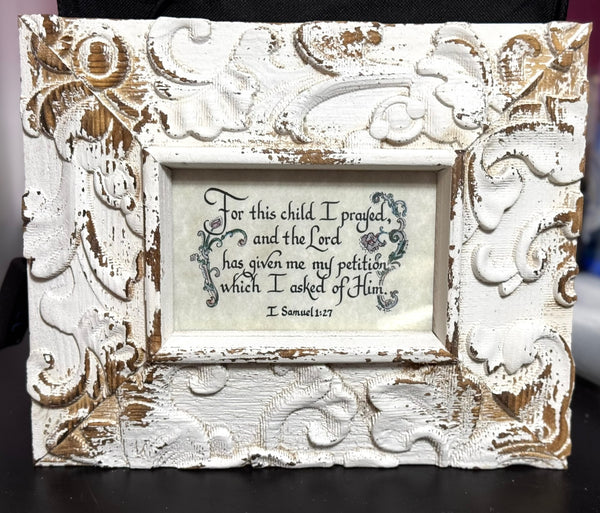 For this child I prayed,
and the Lord
has given me my petition
which I asked of Him.
I Samuel 1:27